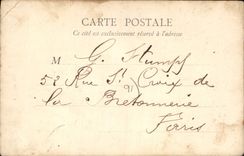 CARTE POSTALE
Ce côté est exclusivement réservé à l'adresse
M G. Stumpf
52 Rue St Croix de
la Bretonnerie
Paris